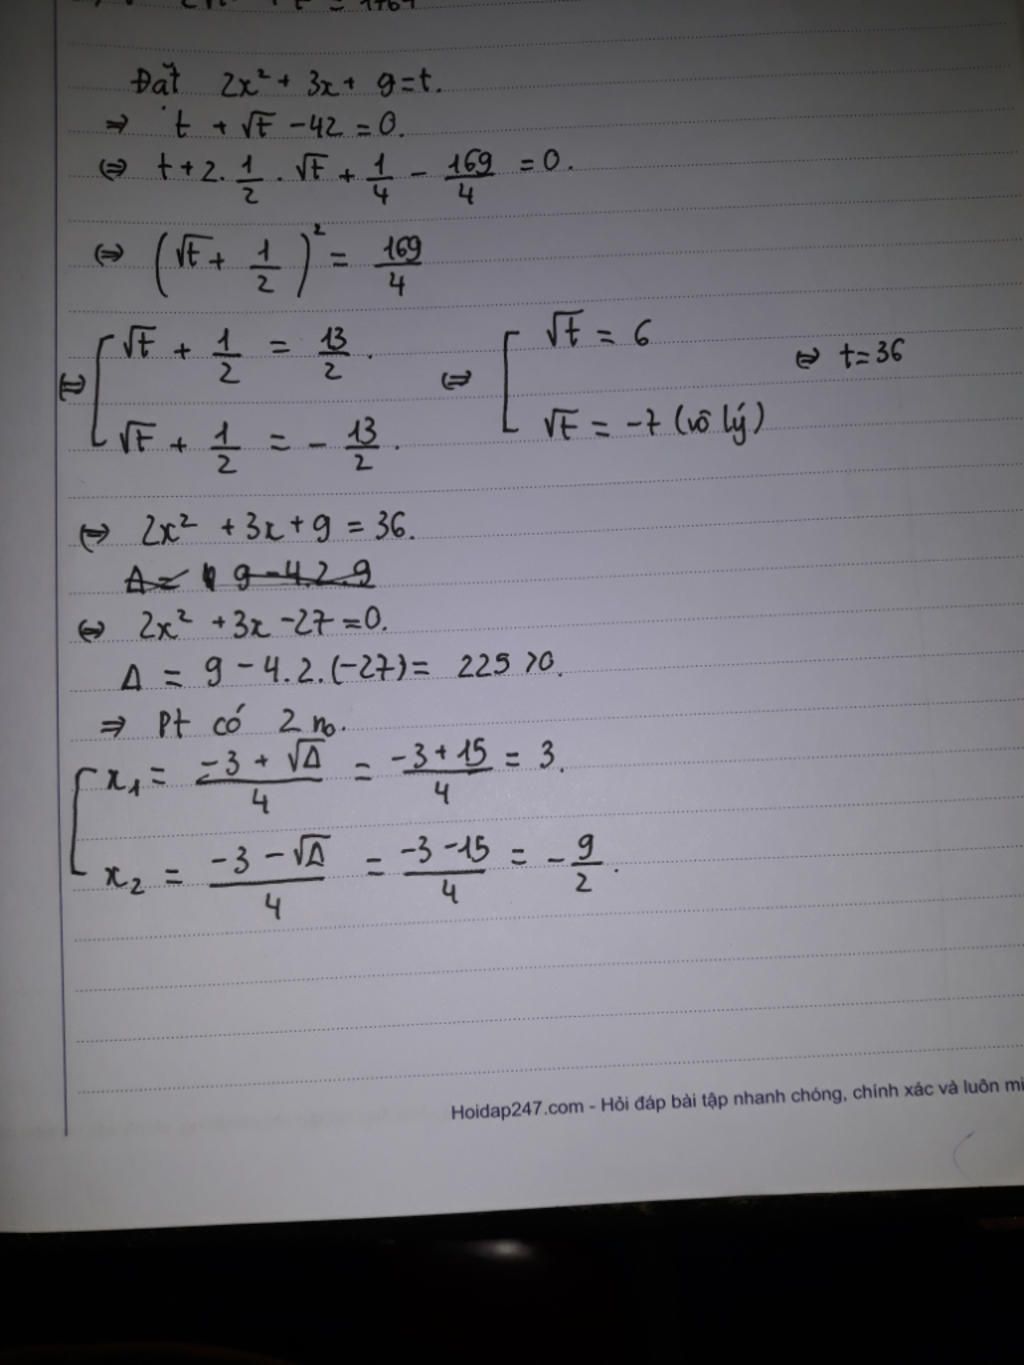 Đặt 2x² + 3x + 9 = t.
⇒ t + √t - 42 = 0.
⇔ t + 2. 1/2 . √t + 1/4 - 169/4 = 0.
⇔ (√t + 1/2)² = 169/4
⇔ [ √t + 1/2 = 13/2 . ⇔ [ √t = 6 ⇔ t = 36
√t + 1/2 = - 13/2 . √t = -7 (vô lý)
⇔ 2x² + 3x + 9 = 36.
⇔ 2x² + 3x - 27 = 0.
Δ = 9 - 4.2.(-27) = 225 > 0.
⇒ Pt có 2 n₀.
[ x₁ = (-3 + √Δ)/4 = (-3 + 15)/4 = 3.
x₂ = (-3 - √Δ)/4 = (-3 - 15)/4 = - 9/2 .
Hoidap247.com - Hỏi đáp bài tập nhanh chóng, chính xác và luôn mi